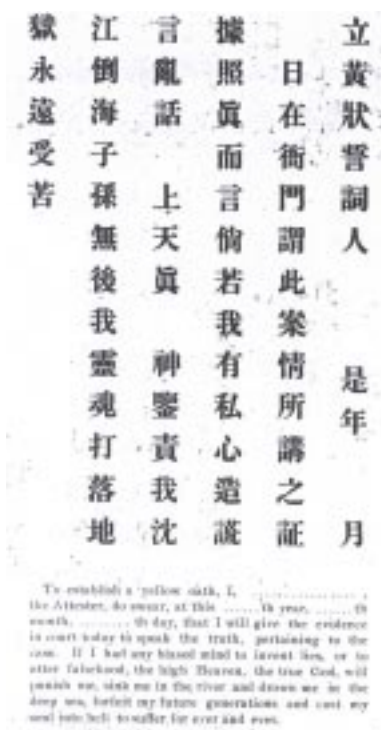 立黃狀誓詞人 是年 月
日在衙門謂此案情所講之証
據照眞而言倘若我有私心造謊
言亂話 上天眞 神鑒責我沈
江倒海子孫無後我靈魂打落地
獄永遠受苦
To establish a yellow oath, I, ....................,
the Attester, do swear, at this .......th year, ...... th
month, ......... th day, that I will give the evidence
in court today to speak the truth, pertaining to the
case. If I had any biased mind to invent lies, or to
utter falsehood, the high Heaven, the true God, will
punish me, sink me in the river and drown me in the
deep sea, forfeit my future generations and cast my
soul into hell to suffer for ever and ever.